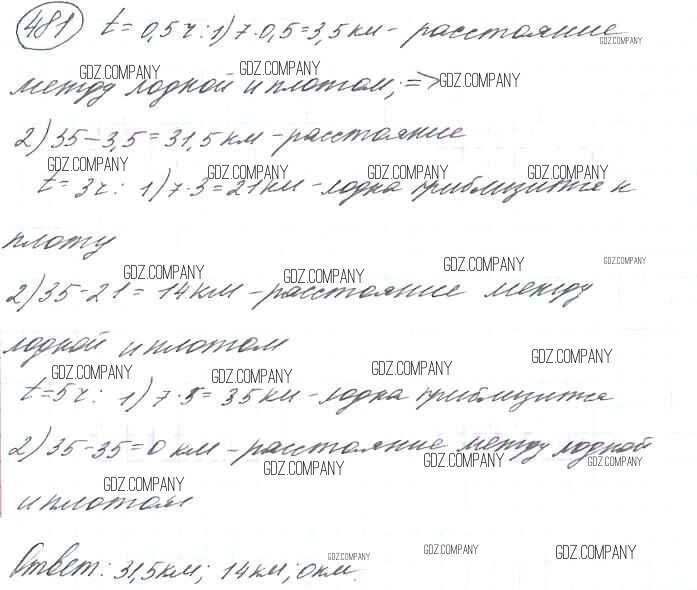 481 t = 0,5 ч: 1) 7·0,5=3,5 км - расстояние
GDZ.COMPANY
GDZ.COMPANY GDZ.COMPANY
между лодкой и плотом; => GDZ.COMPANY
2) 35-3,5=31,5 км - расстояние
GDZ.COMPANY GDZ.COMPANY GDZ.COMPANY GDZ.COMPANY
t= 3ч: 1) 7·3=21 км - лодка приблизится к
плоту
GDZ.COMPANY GDZ.COMPANY GDZ.COMPANY GDZ.COMPANY
2) 35-21=14 км - расстояние между
лодкой и плотом
GDZ.COMPANY GDZ.COMPANY GDZ.COMPANY GDZ.COMPANY
t=5ч: 1) 7·5=35 км - лодка приблизится
2) 35-35=0 км - расстояние между лодкой
GDZ.COMPANY GDZ.COMPANY GDZ.COMPANY
GDZ.COMPANY
и плотом
Ответ: 31,5км; 14км; 0км.
GDZ.COMPANY GDZ.COMPANY GDZ.COMPANY